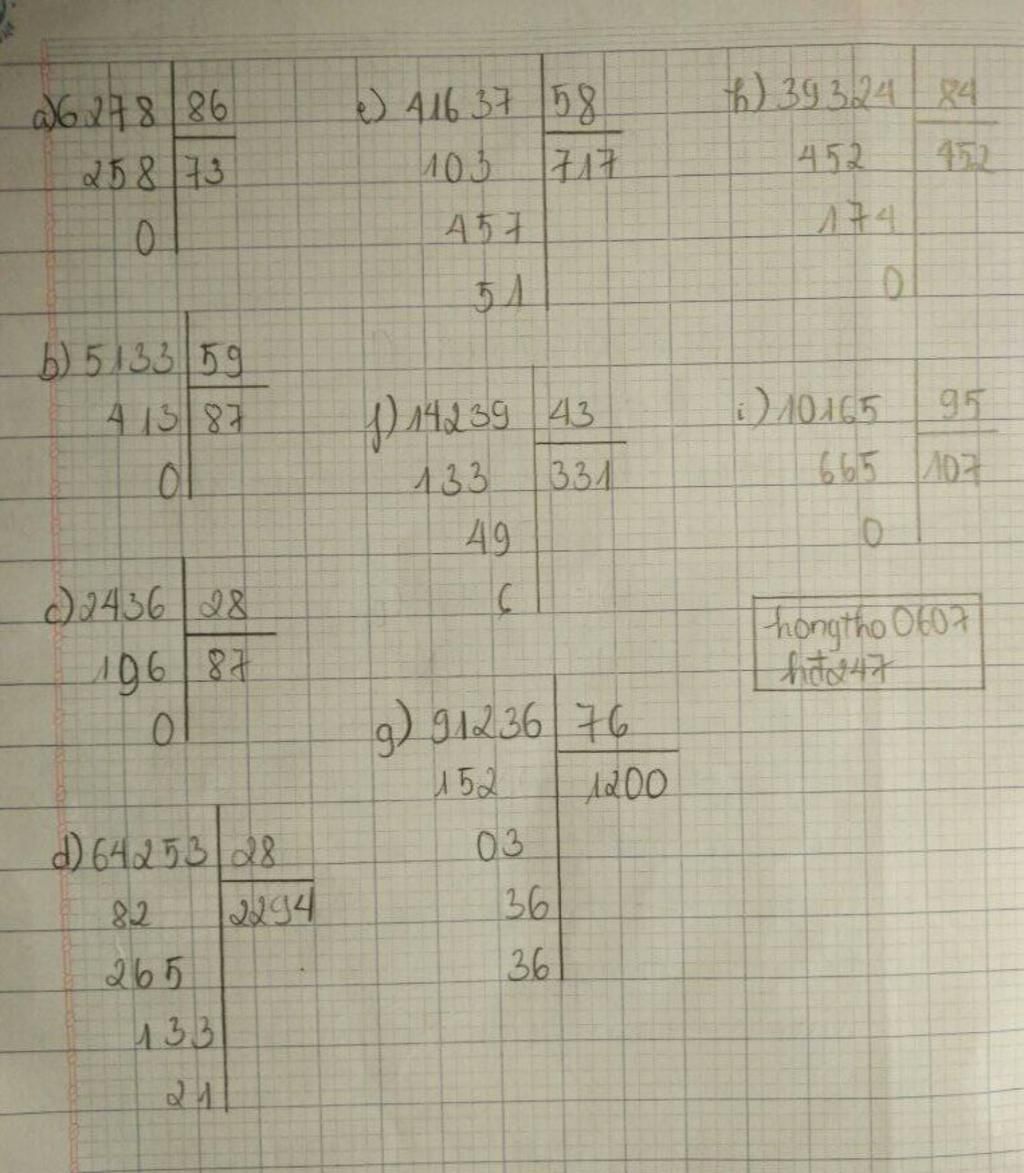 a) 6278 86
258 73
0
b) 5133 59
413 87
0
c) 2436 28
196 87
0
d) 64253 28
82 2294
265
133
21
e) 41637 58
103 717
457
51
f) 14239 43
133 331
49
6
g) 91236 76
152 1200
03
36
36
h) 39324 84
452 452
174
0
i) 10165 95
665 107
0
hongtho0607
hđ247